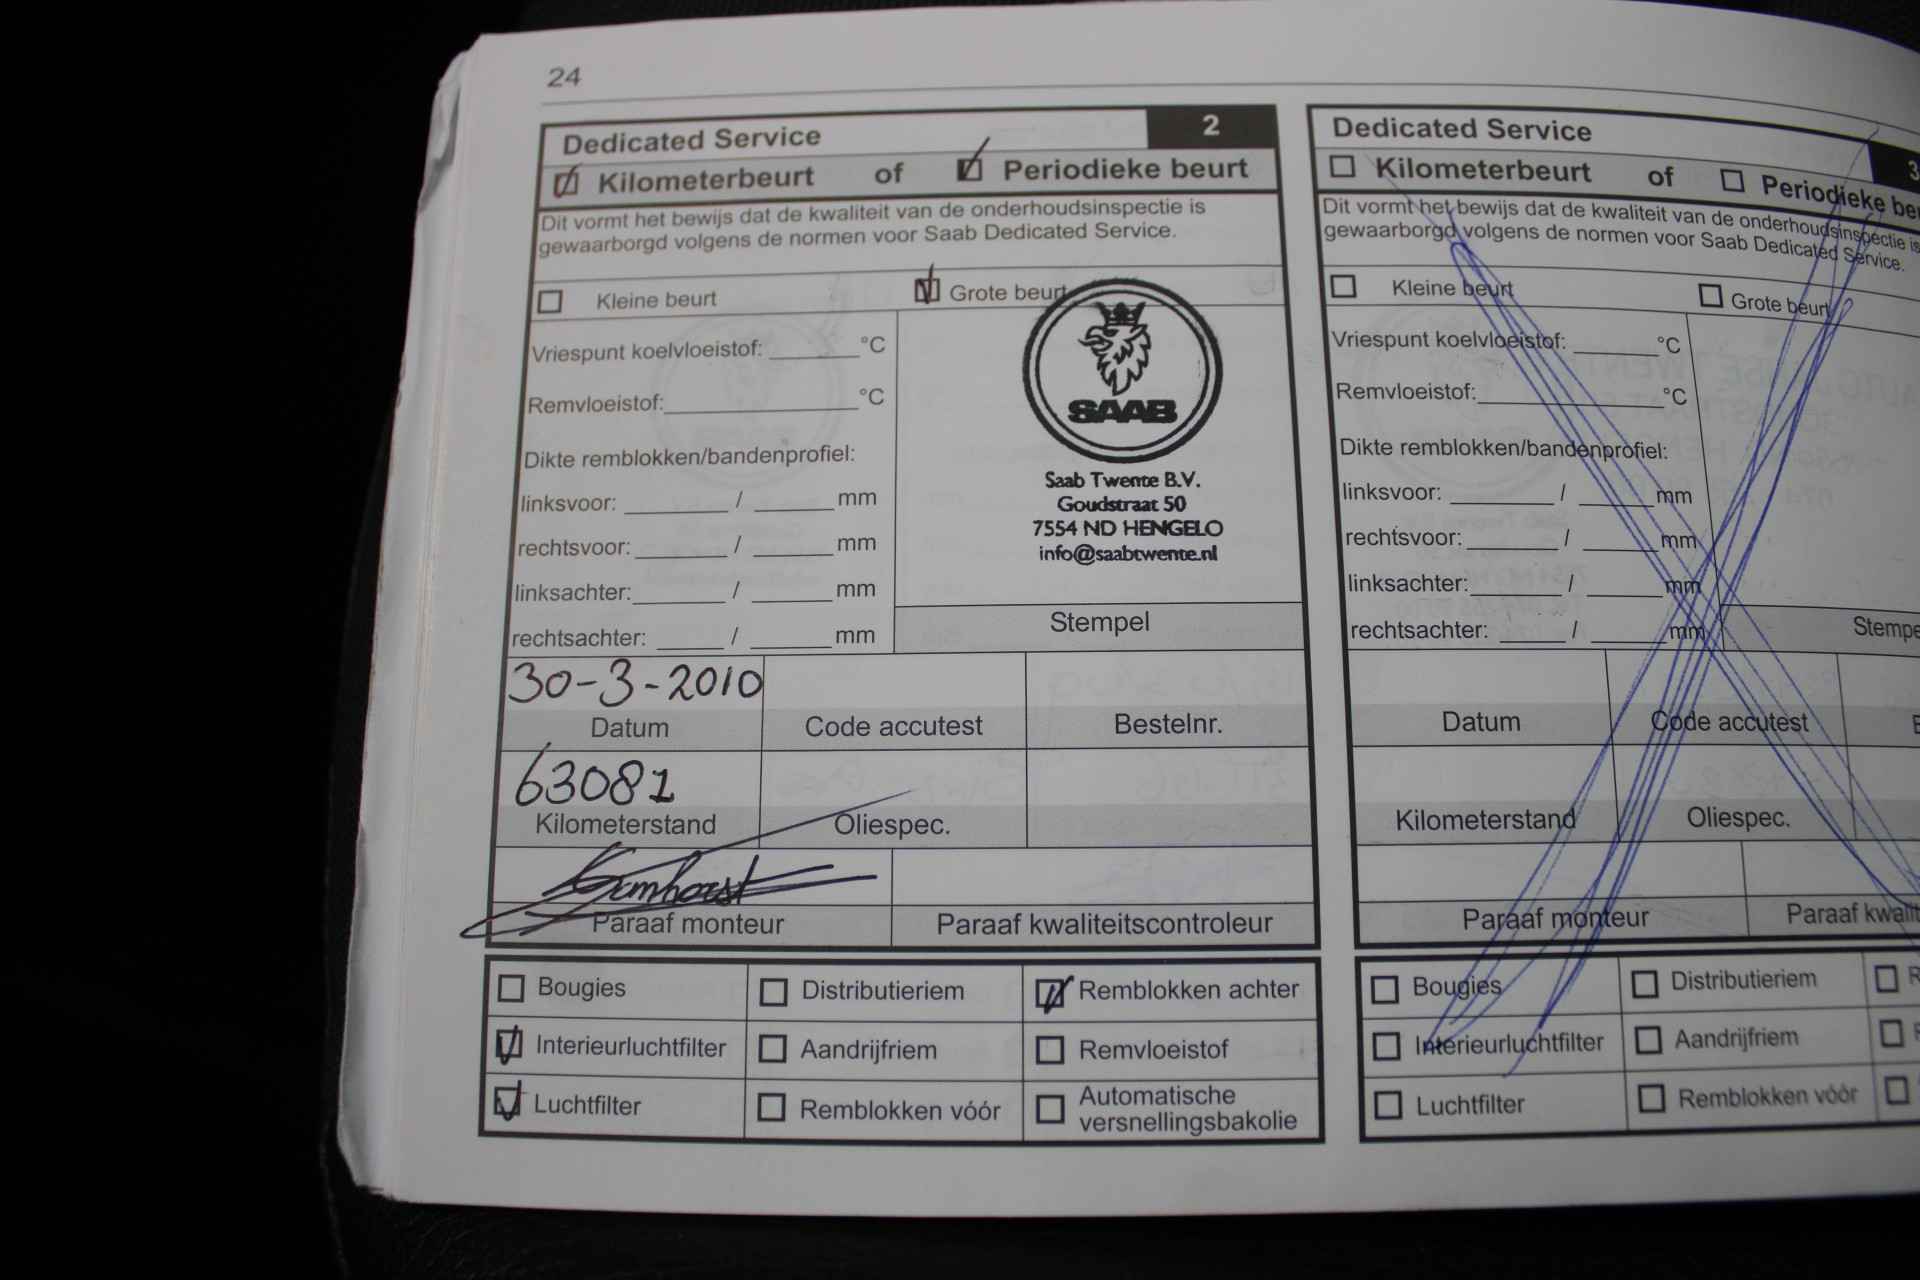 24
Dedicated Service 2
Kilometerbeurt of Periodieke beurt
Dit vormt het bewijs dat de kwaliteit van de onderhoudsinspectie is
gewaarborgd volgens de normen voor Saab Dedicated Service.
Kleine beurt Grote beurt
Vriespunt koelvloeistof: ______ °C
Remvloeistof: ______ °C
Dikte remblokken/bandenprofiel:
linksvoor: ______ / ______ mm
rechtsvoor: ______ / ______ mm
linksachter: ______ / ______ mm
rechtsachter: ______ / ______ mm
SAAB
Saab Twente B.V.
Goudstraat 50
7554 ND HENGELO
info@saabtwente.nl
Stempel
30-3-2010
Datum Code accutest Bestelnr.
63081
Kilometerstand Oliespec.
Paraaf monteur Paraaf kwaliteitscontroleur
Bougies Distributieriem Remblokken achter
Interieurluchtfilter Aandrijfriem Remvloeistof
Luchtfilter Remblokken vóór Automatische
versnellingsbakolie
Dedicated Service 3
Kilometerbeurt of Periodieke
Dit vormt het bewijs dat de kwaliteit van de onderhoudsinspectie is
gewaarborgd volgens de normen voor Saab Dedicated Service.
Kleine beurt Grote beurt
Vriespunt koelvloeistof: ______ °C
Remvloeistof: ______ °C
Dikte remblokken/bandenprofiel:
linksvoor: ______ / ______ mm
rechtsvoor: ______ / ______ mm
linksachter: ______ / ______ mm
rechtsachter: ______ / ______ mm
Stempe
Datum Code accutest
Kilometerstand Oliespec.
Paraaf monteur Paraaf kwalit
Bougies Distributieriem
Interieurluchtfilter Aandrijfriem
Luchtfilter Remblokken vóór